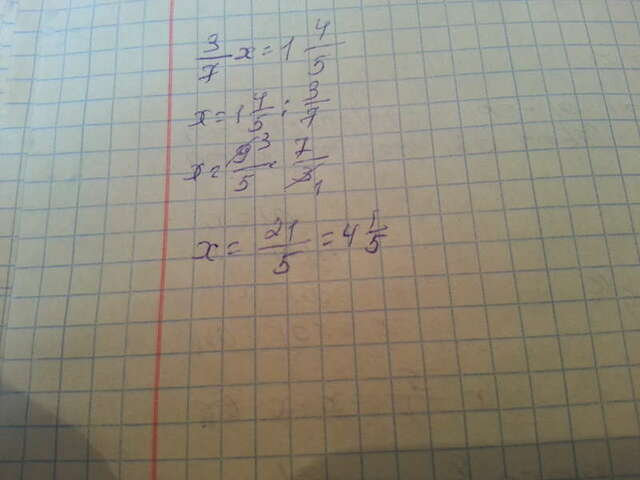 3/7 x = 1 4/5
x = 1 4/5 : 3/7
x = 9 3/5 · 7/3 1
x = 21/5 = 4 1/5